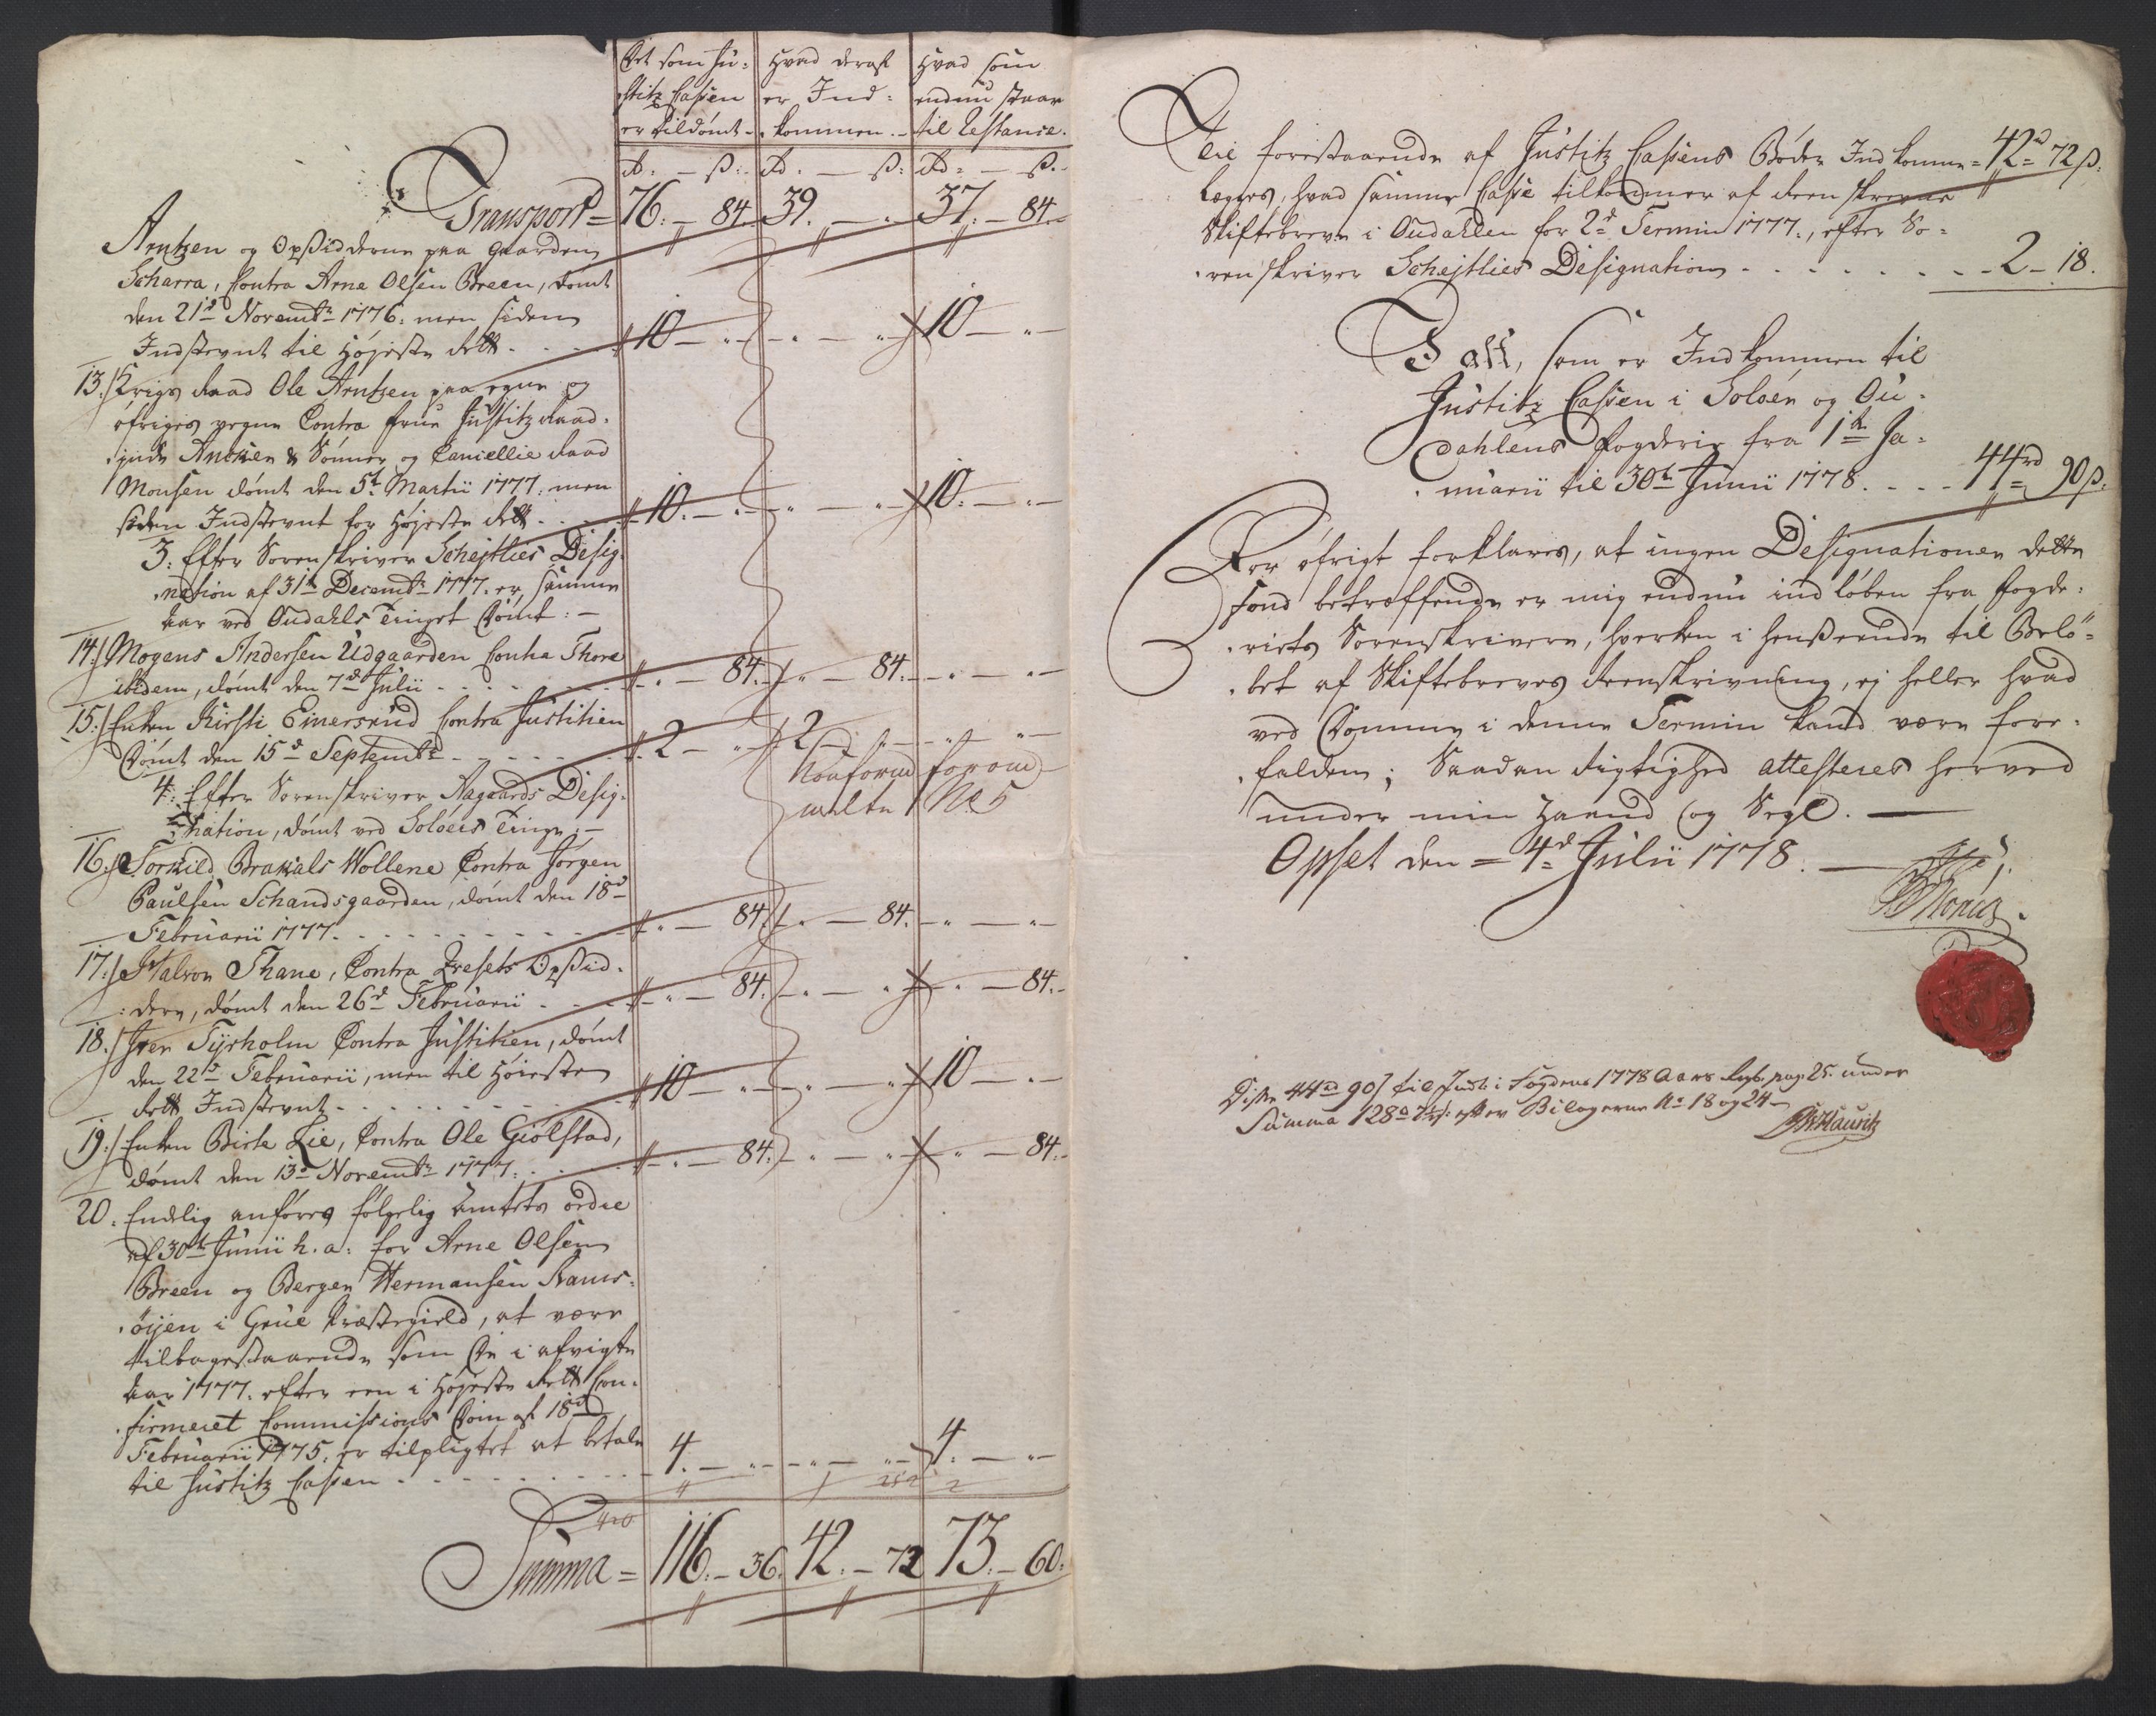 Det som Ju-
stitz Cassen
er tildömt.
Hvad deraf
er Ind-
kommen.
Hvad som
endnu staar
til Restance.
Rd. — ß. Rd. — ß. Rd. — ß.
Transport = 76. — 84. 39. — „ 37. — 84.
Arntzen og Opsidderne paa Gaarden
Scharra, Contra Arne Olsen Breen, dömt
den 21de Novembr 1776. men siden
Indstevnt til Höjeste Rett. 10 — „ „ — „ 10 — „
13. Krigs Raad Ole Arntzen paa egne og
öfriges vegne Contra Frue Justitz Raad-
inde Ancher & Sönner og Cancellie Raad
Monsen dömt den 5t Martii 1777. men
siden Indstevnt for Höjeste Rett. 10. — „ „ — „ 10. — „
3. Efter Sorenskriver Schejtlies Desig-
nation af 31te Decembr 1777. er, samme
Aar ved Oudahls Tinget Dömt: —
14. Mogens Andersen Udgaarden Contra Thore
ibidem, dömt den 7d Julii „ — 84. „ — 84. „ — „
15. Enken Kirsti Einersrud Contra Justitien
Dömt den 15d Septembr 2 — „ 2 — „ „ — „
4. Efter Sorenskriver Aagaards Desig-
nation, dömt ved Soloers Tinge: —
16. Torkild Brakals Wollene Contra Jörgen
Paulsen Schandsgaarden, dömt den 18d
Februarii 1777. „ — 84. „ — 84. „ — „
17. Halvor Thane, Contra Opsid-
dere, dömt den 26d Februarii „ — 84. „ — „ „ — 84.
18. Iver Tyrholm Contra Justitien, dömt
den 22d Februarii, men til Höieste
Rett Indstevnt 10 — „ „ — „ 10 — „
19. Enken Birte Lie, Contra Ole Giölstad,
dömt den 13d Novembr 1777. „ — 84. „ — „ „ — 84.
20. Endelig anföres fölgelig Amtets ordre
af 30te Junii h. a. for Arne Olsen
Breen og Bergen Hermansen Rams-
öyen i Grue Præstegield, at være
tilbagestaaende som De i afvigte
Aar 1777. efter een i Höjeste Rett Con-
firmeret Commissions Dom af 18d
Februarii 1775. er tilpligtet at betale
til Justitz Cassen 4. — „ „ — „ 4. — „
Summa = 116. — 36. 42. — 72 73. — 60.
Til forestaaende af Justitz Cassens Böder Indkomne = 42rd 72ß.
Legges, hvad samme Casse tilkommer af Reenskrevne
Skiftebreve i Oudahlen for 2d Termin 1777., efter So-
renskriver Schejtlies Designation 2 — 18.
I alt, som er Indkommen til
Justitz Cassen i Soloer og Ou-
dahlens Fogderie fra 1te Ja-
nuarii til 30te Junii 1778. 44rd 90ß.
For öfrigt forklares, at ingen Designationer dette
Fond betreffende er mig endnu indlöben fra Fogde-
riets Sorenskrivere, hverken i henseende til Belö-
bet af Skiftebreves Reenskrivning, ej heller hvad
ved Domme i denne Termin kand være fore-
falden; Saadan Rigtighed attesteres herved
under min Haand og Segl. —
Opset den = 4d Julii 1778. —
Disse 44rd 90ß til Indt: i Fogdens 1778 Aars Regb. pag. 25. under
Summa 128 efter Bilagerne No 18 og 24